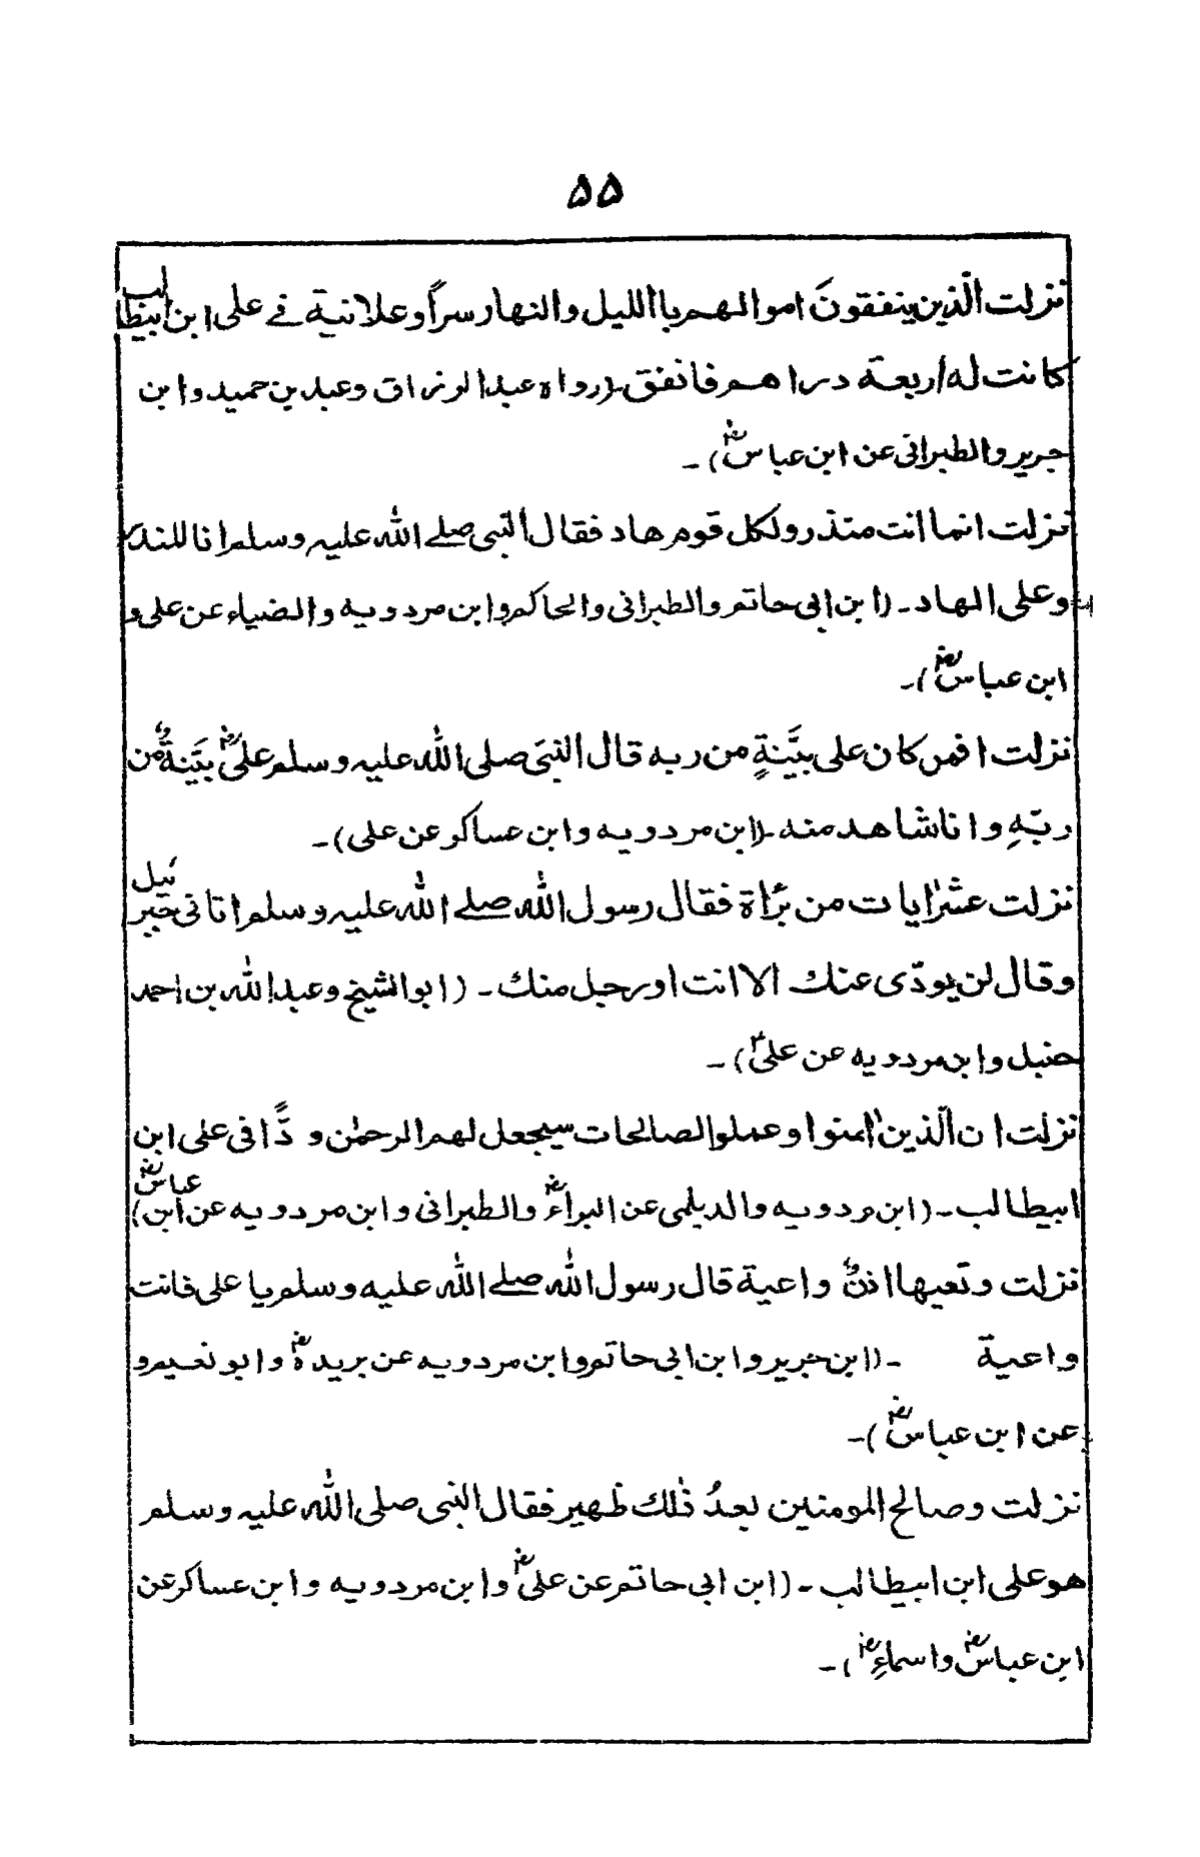 ۵۵
نزلت الّذین ینفقونَ اموالهم باللیل والنهار سراً وعلانیة فے علی ابن ابیطالب
کانت له اربعة دراهم فانفق ـ (رواه عبدالرزاق وعبد بن حمید وابن
جریر والطبرانی عن ابن عباسؓ) ـ
نزلت انما انت منذر ولکل قوم هاد فقال النّبی صلے اللّٰه علیه وسلم انا للنذر
وعلی الهاد ـ (ابن ابی حاتم والطبرانی والحاکم وابن مردویه والضیاء عن علی و
ابن عباسؓ) ـ
نزلت افمن کان علی بیَّنةٍ من ربه قال النبیَ صلی اللّٰه علیه وسلم علیؓ بیَّنةٌ من
ربّهِ وانا شاهد منه ـ (ابن مردویه وابن عساکر عن علی) ـ
نزلت عشر اٰیات من برٔاة فقال رسول اللّٰه صلے اللّٰه علیه وسلم اتانی جبرئیل
وقال لن یودّی عنك الا انت او رجل منك ـ (ابوالشیخ وعبداللّٰه بن احمد
حنبل وابن مردویه عن علیؑ) ـ
نزلت ان الّذین اٰمنوا وعملوا الصالحات سیجعل لهم الرحمٰن ودًّا فی علی ابن
ابیطالب ـ (ابن مردویه والدیلمی عن البراءؓ والطبرانی وابن مردویه عن ابن عباسؓ)
نزلت وتعیها اذنٌ واعیة قال رسول اللّٰه صلے اللّٰه علیه وسلم یا علی فانت
واعیة ـ (ابن جریر وابن ابی حاتم وابن مردویه عن بریدهؓ وابو نعیم و
عن ابن عباسؓ) ـ
نزلت وصالح المومنین بعدُ ذٰلك ظهیر فقال النبی صلی اللّٰه علیه وسلم
هو علی ابن ابیطالب ـ (ابن ابی حاتم عن علیؓ وابن مردویه وابن عساکر عن
ابن عباسؓ واسماءِؓ) ـ